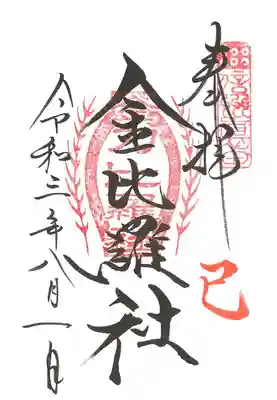 奉拝
巳
金比羅社
令和三年八月一日